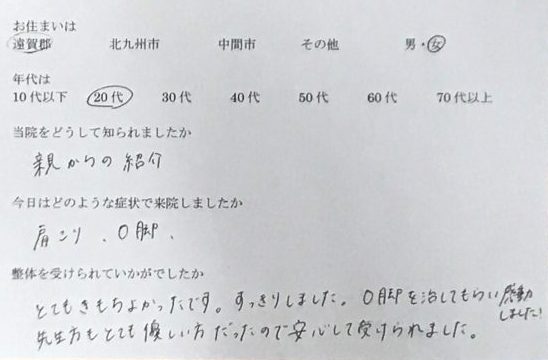 お住まいは
遠賀郡 北九州市 中間市 その他 男・女
年代は
10代以下 20代 30代 40代 50代 60代 70代以上
当院をどうして知られましたか
親からの紹介
今日はどのような症状で来院しましたか
肩こり、O脚、
整体を受けられていかがでしたか
とてもきもちよかったです。すっきりしました。O脚を治してもらい感動
しました!
先生方もとても優しい方だったので安心して受けられました。